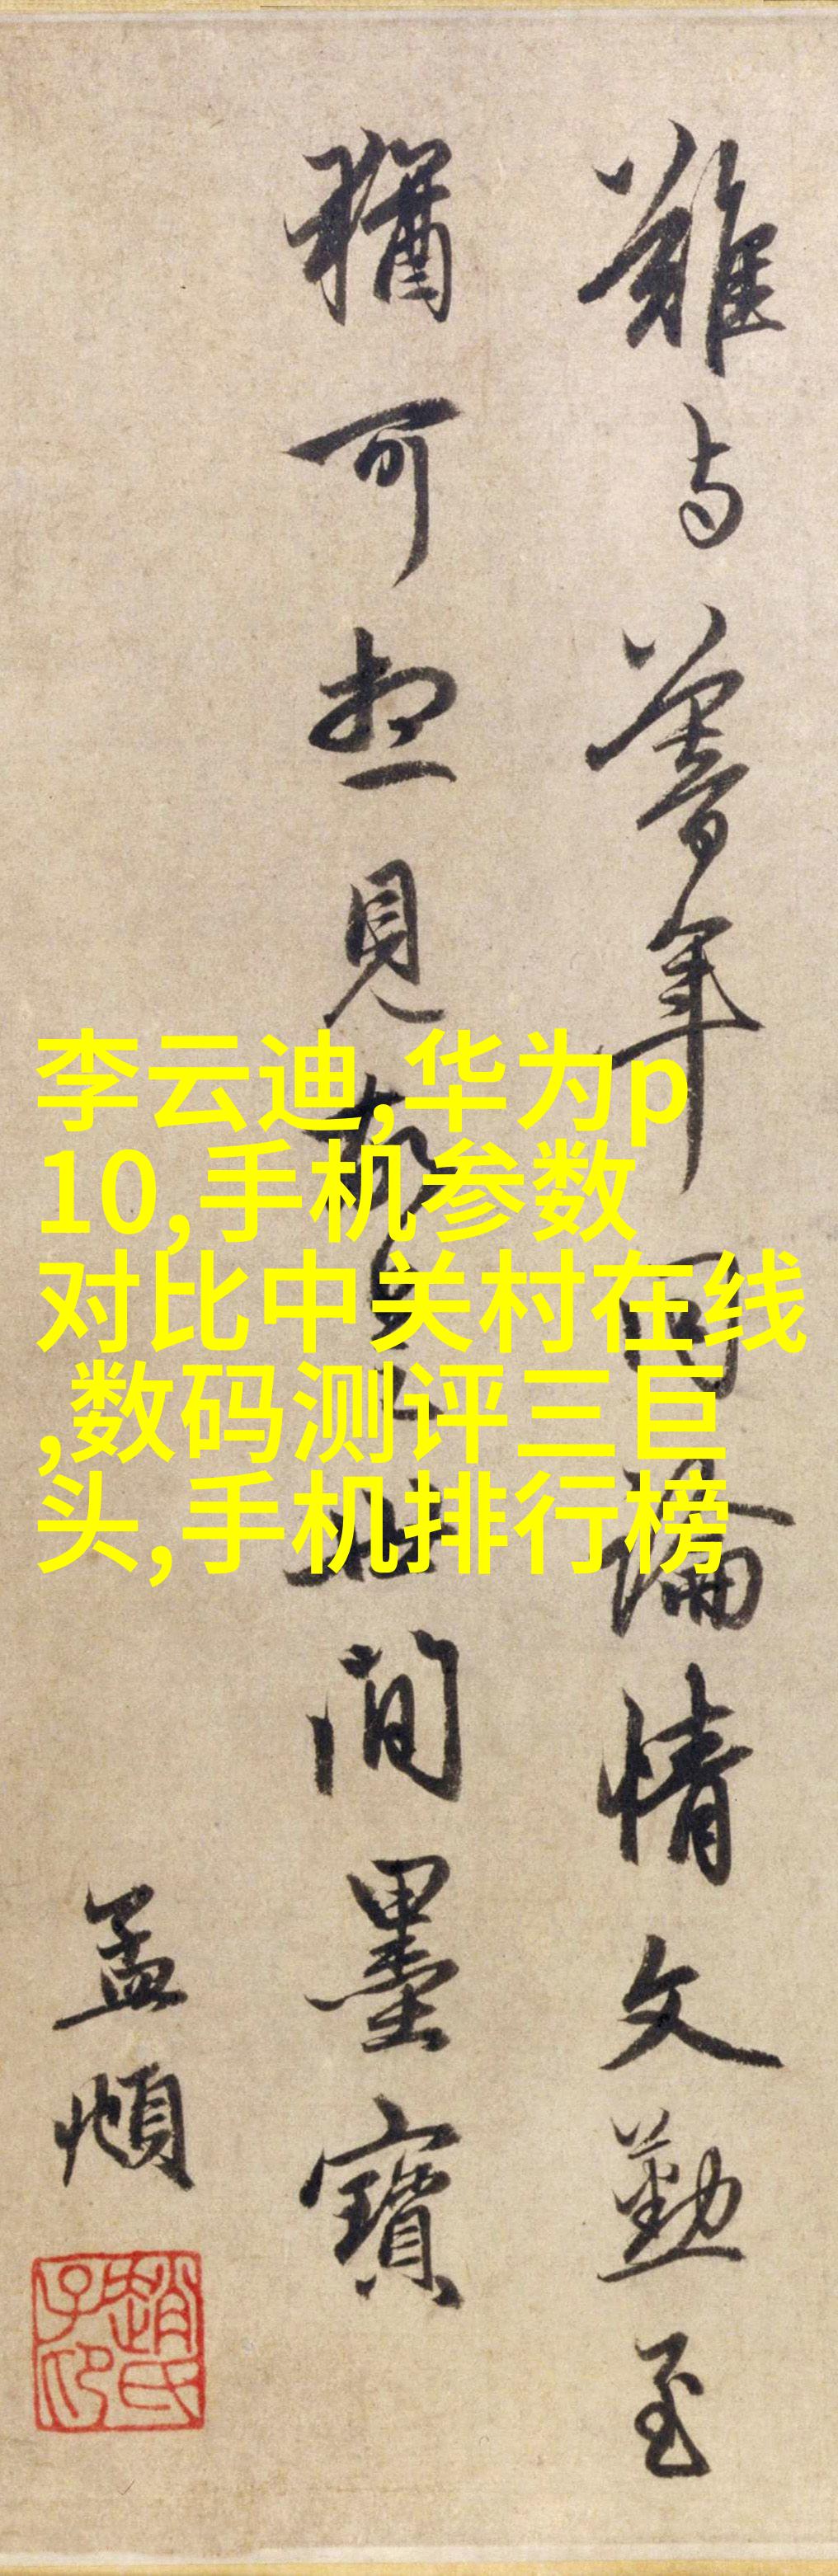 難与暮年同論情文勤至
猶可想見故是世間墨寶
孟頫
趙氏子昂
李云迪,华为p
10,手机参数
对比中关村在线
,数码测评三巨
头,手机排行榜